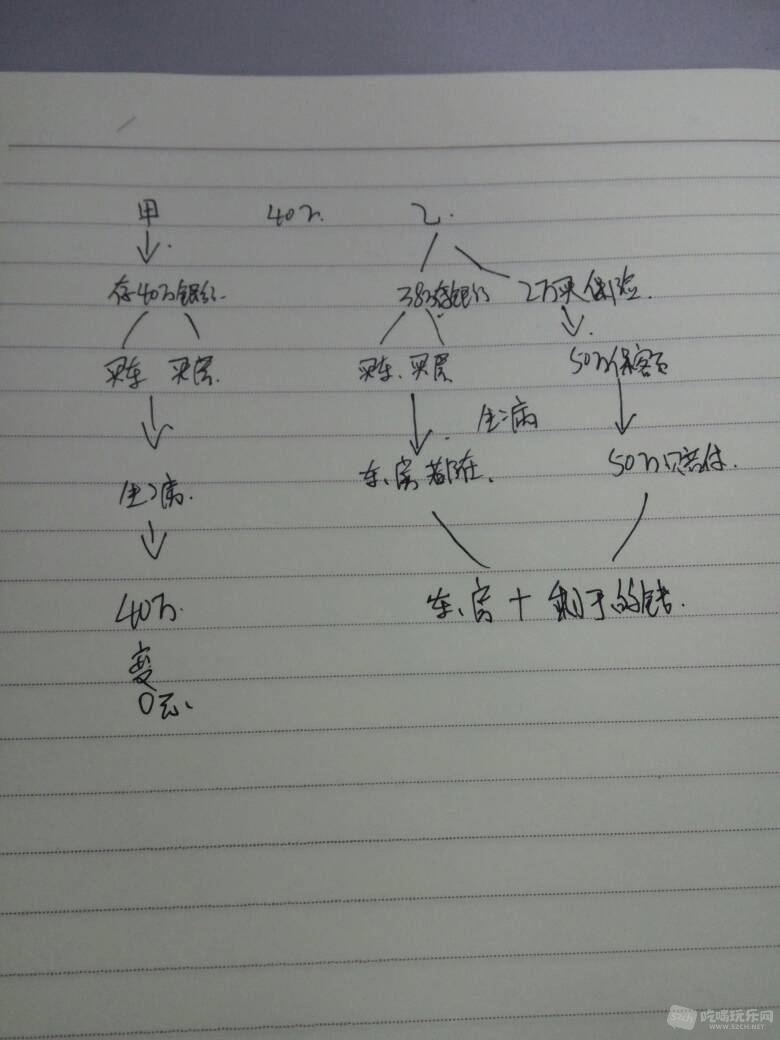 甲 40万 乙.
存40万银行. 38万存银行 2万买保险.
买车 买房. 买车、买房 50万保额
生病
生病. 车、房都在. 50万赔付.
40万 车、房 + 剩于的钱.
变
0元.
吃喝玩乐网
WWW.SZCH.NET